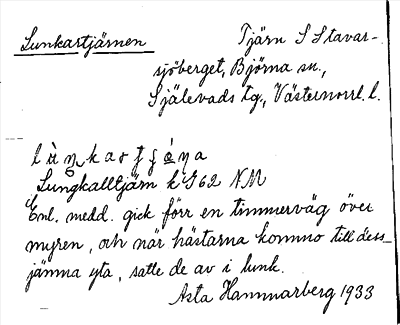 Lunkartjärnen
Tjärn S Stavar-
sjöberget, Björna sn.,
Själevads tg., Västernorrl. l.
Lungkalltjärn k GS62 NM
Enl. medd. gick förr en timmerväg över
myren, och när hästarna kommo till dess
jämna yta, satte de av i lunk.
Asta Hammarberg 1933